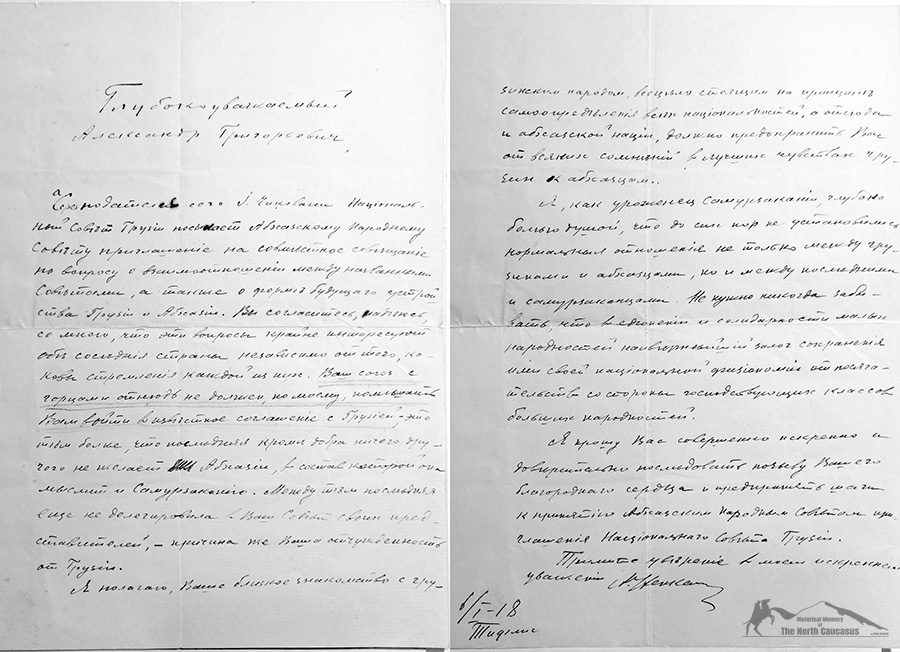 Глубокоуважаемый
Александр Григорьевич
Чрез подателя сего І. Чиковани Національ-
ный Совѣт Грузіи посылает Абхазскому Народному
Совѣту приглашеніе на совмѣстное совѣщаніе
по вопросу о взаимоотношеніи между названными
Совѣтами, а также о формѣ будущаго устрой
ства Грузіи и Абхазіи. Вы согласитесь, надѣюсь,
со мною, что эти вопросы крайне интересуют
обѣ сосѣднія страны независимо от того, ка-
ковы стремленія каждой из них. Ваш союз с
горцами отнюдь не должен, по моему, помѣшать
Вам войти в извѣстное соглашеніе с Грузіей, это
тѣм более, что последняя кромѣ добра ничего дру-
гого не желает Абхазіи, в состав которой она
мыслит и Самурзакань. Между тѣм послѣдняя
еще не делегировала в Ваш Совѣт своих пред-
ставителей, – причина же Ваша отчужденность
от Грузіи.
Я полагаю, Ваше близкое знакомство с гру-
зинским народом, всецѣло стоящим на принципѣ
самоопредѣленія всѣх національностей, а отсюда
и абхазской націи, должно предохранить Вас
от всяких сомнѣній в лучших чувствах гру-
зин к абхазцам.
Я, как уроженец Самурзакани, глубоко
болѣю душой, что до сих пор не установились
нормальныя отношенія не только между гру-
зинами и абхазцами, но и между послѣдними
и самурзаканцами. Не нужно никогда забы-
вать, что в единеніи и солидарности малых
народностей наивѣрнѣйшій залог сохраненія
ими своей національной физіономіи от посяга-
тельств со стороны господствующих классов
больших народностей.
Я прошу Вас совершенно искренно и
довѣрительно послѣдовать позыву Вашего
благороднаго сердца и предпринять шаги
к принятію Абхазским Народным Совѣтом при-
глашенія Національнаго Совѣта Грузіи.
Примите увѣреніе в моем искреннем
уваженіи
6/I–18
Тифлис
Historical Memory
of
The North Caucasus